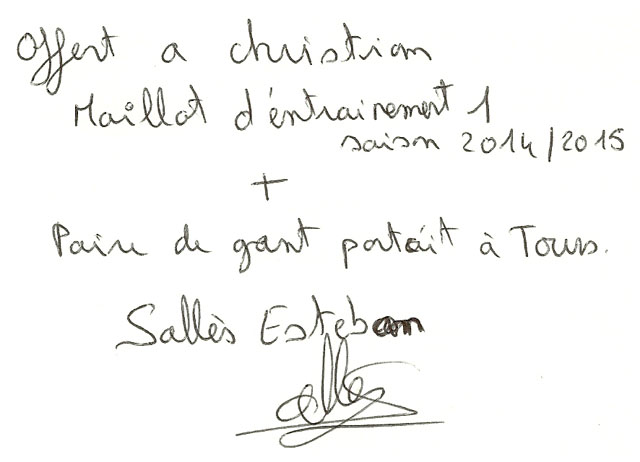 Offert a christian
Maillot d'éntrainement 1
saison 2014/2015
+
Paire de gant portait à Tours.
Sallès Esteban